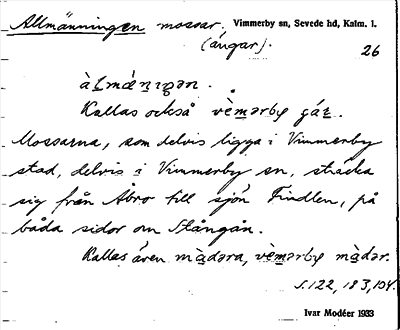 Allmänningen mossar. Vimmerby sn, Sevede hd, Kalm. l.
(ängar). 26
àl̠mǽn̠ıgən.
Kallas också vèm̠ərby gár̠.
Mossarna, som delvis ligga i Vimmerby
stad, delvis i Vimmerby sn, sträcka
sig från Åbro till sjön Findlen, på
båda sidor om Stångån.
Kallas även màdəra, vèm̠ərby màdər.
s. 122, 183, 104.
Ivar Modéer 1933